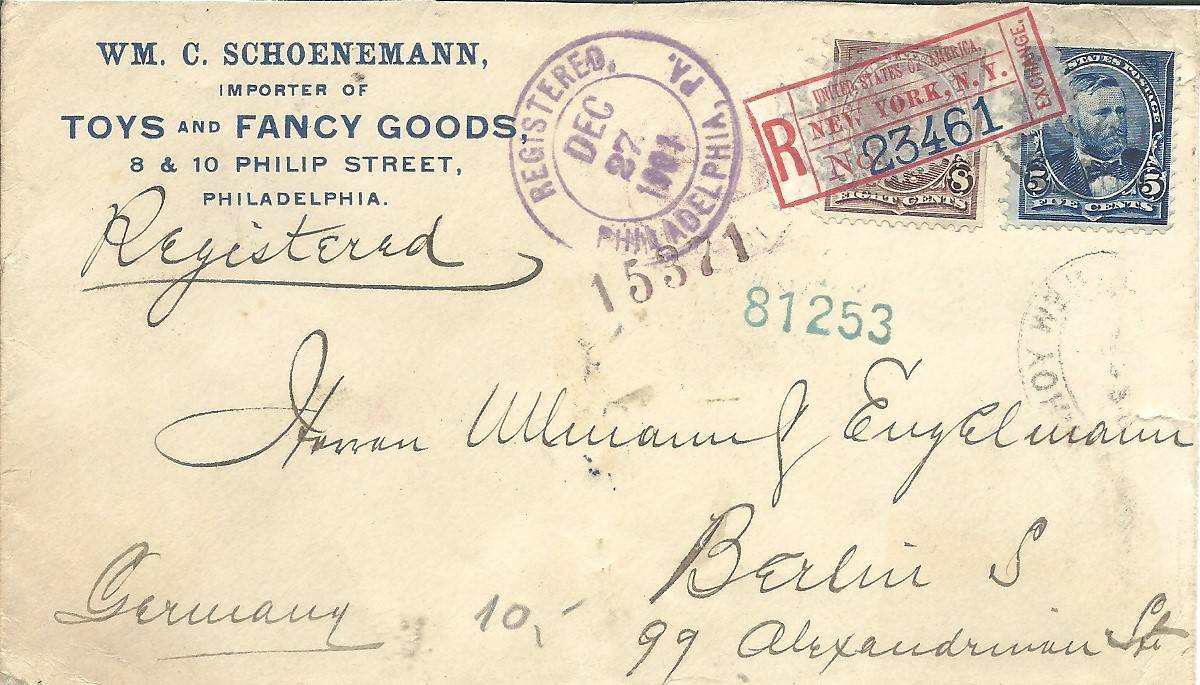 WM. C. SCHOENEMANN,
IMPORTER OF
TOYS AND FANCY GOODS,
8 & 10 PHILIP STREET,
PHILADELPHIA.
Registered
REGISTERED,
PHILADELPHIA, PA.
DEC
27
15371
R
UNITED STATES OF AMERICA.
NEW YORK, N.Y.
EXCHANGE.
No. 23461
8
EIGHT CENTS
UNITED STATES POSTAGE
5 5
FIVE CENTS
81253
Herren Ullmann & Engelmann
Berlin S
99 Alexandrinen Str
Germany
10,-